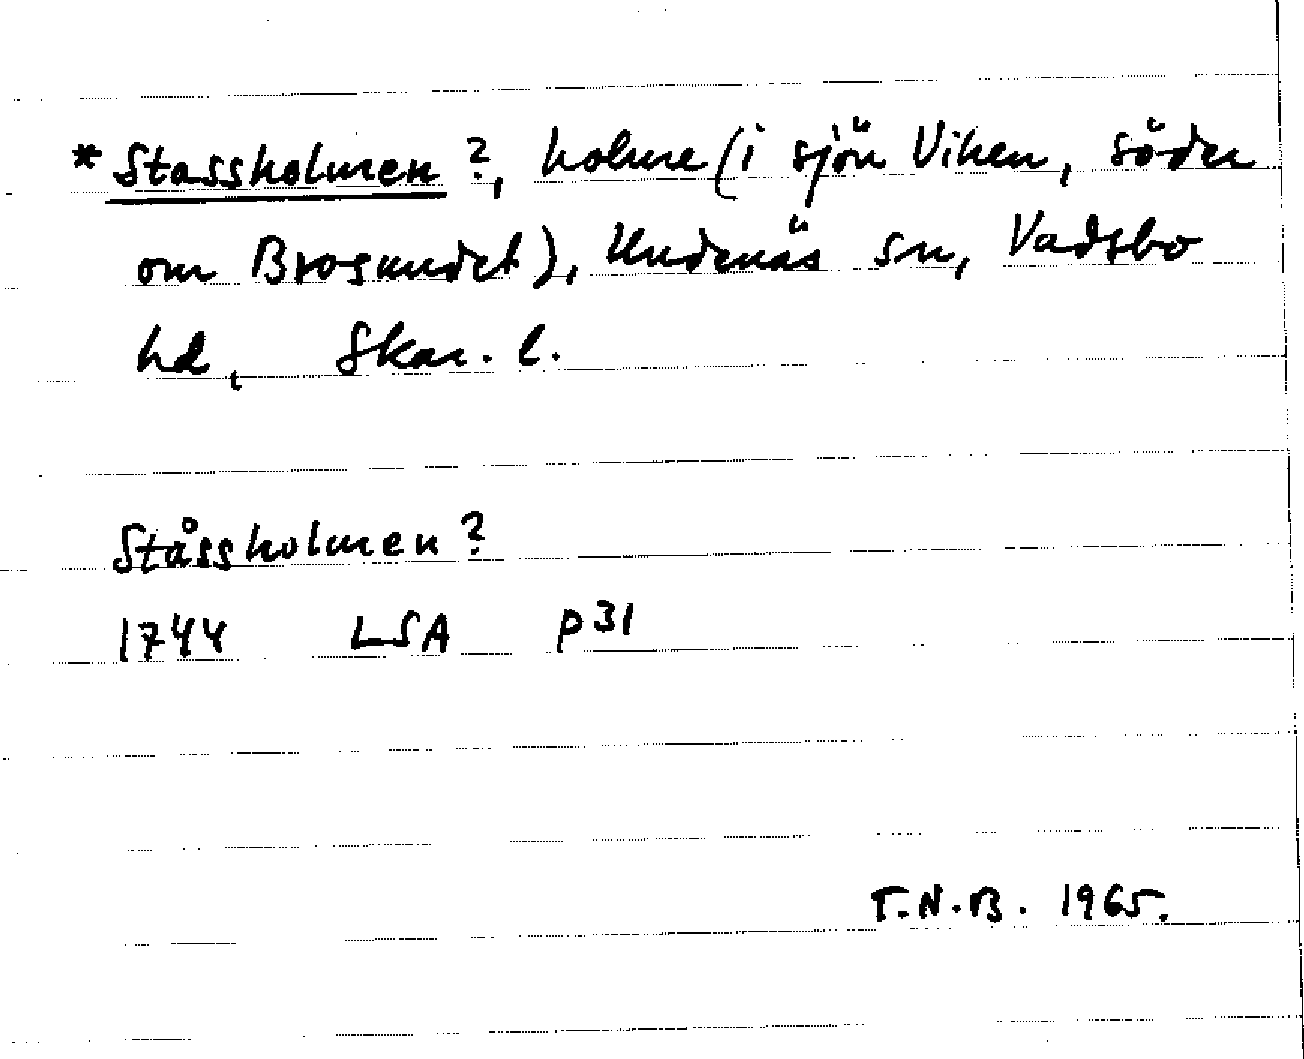 *Stassholmen?, holme (i sjön Viken, söder
om Brosundet), Undenäs sn, Vadsbo
hd, Skar. l.
Ståssholmen?
1744 LSA P31
T.N.B. 1965.